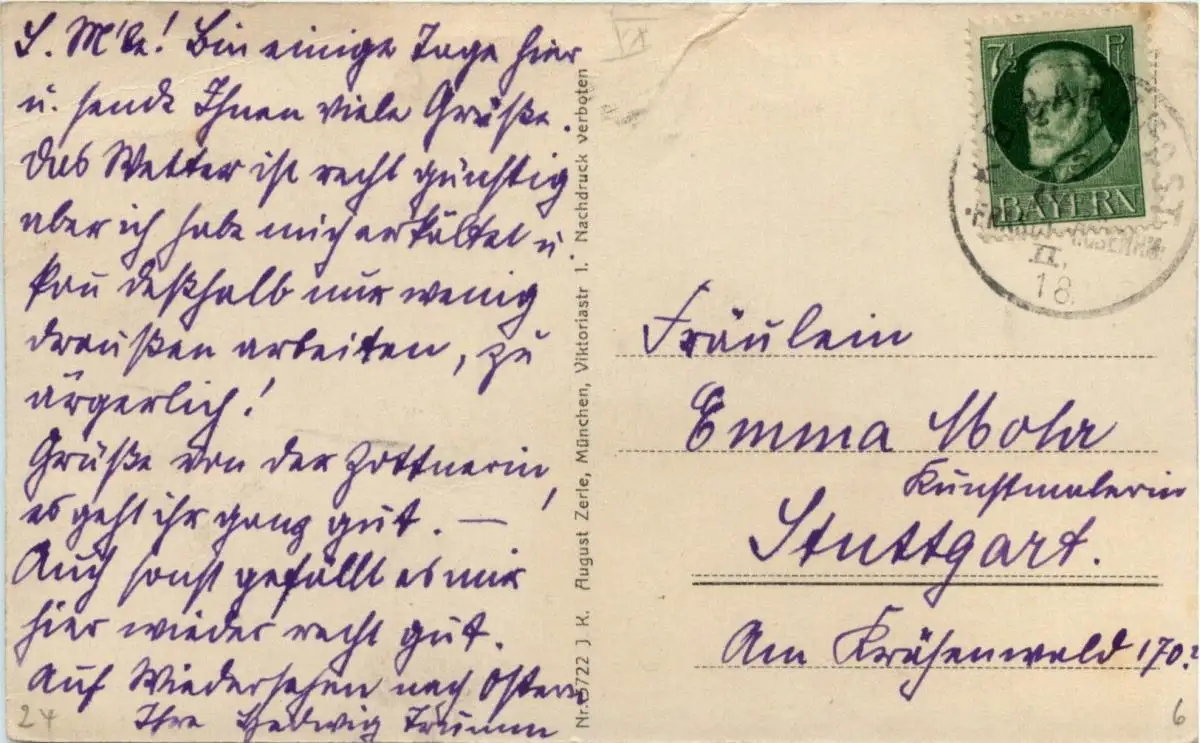 L. M'le! Bin einige Tage hier
u. sende Ihnen viele Grüße.
Das Wetter ist recht günstig
aber ich habe mich erkältet u.
kan deßhalb nur wenig
draußen arbeiten, zu
ärgerlich!
Grüße von der Zottnerin,
es geht ihr ganz gut. —
Auch sonst gefällt es mir
hier wieder recht gut.
Auf Wiedersehen nach Ostern
Ihre Hedwig
24
Nr. 3722 J K. August Zerle, München, Viktoriastr 1. Nachdruck verboten
VI
7½ Pf
BAYERN
II.
18
Fräulein
Emma Mohr
Kunstmalerin
Stuttgart.
Am Krähenwald 170
6